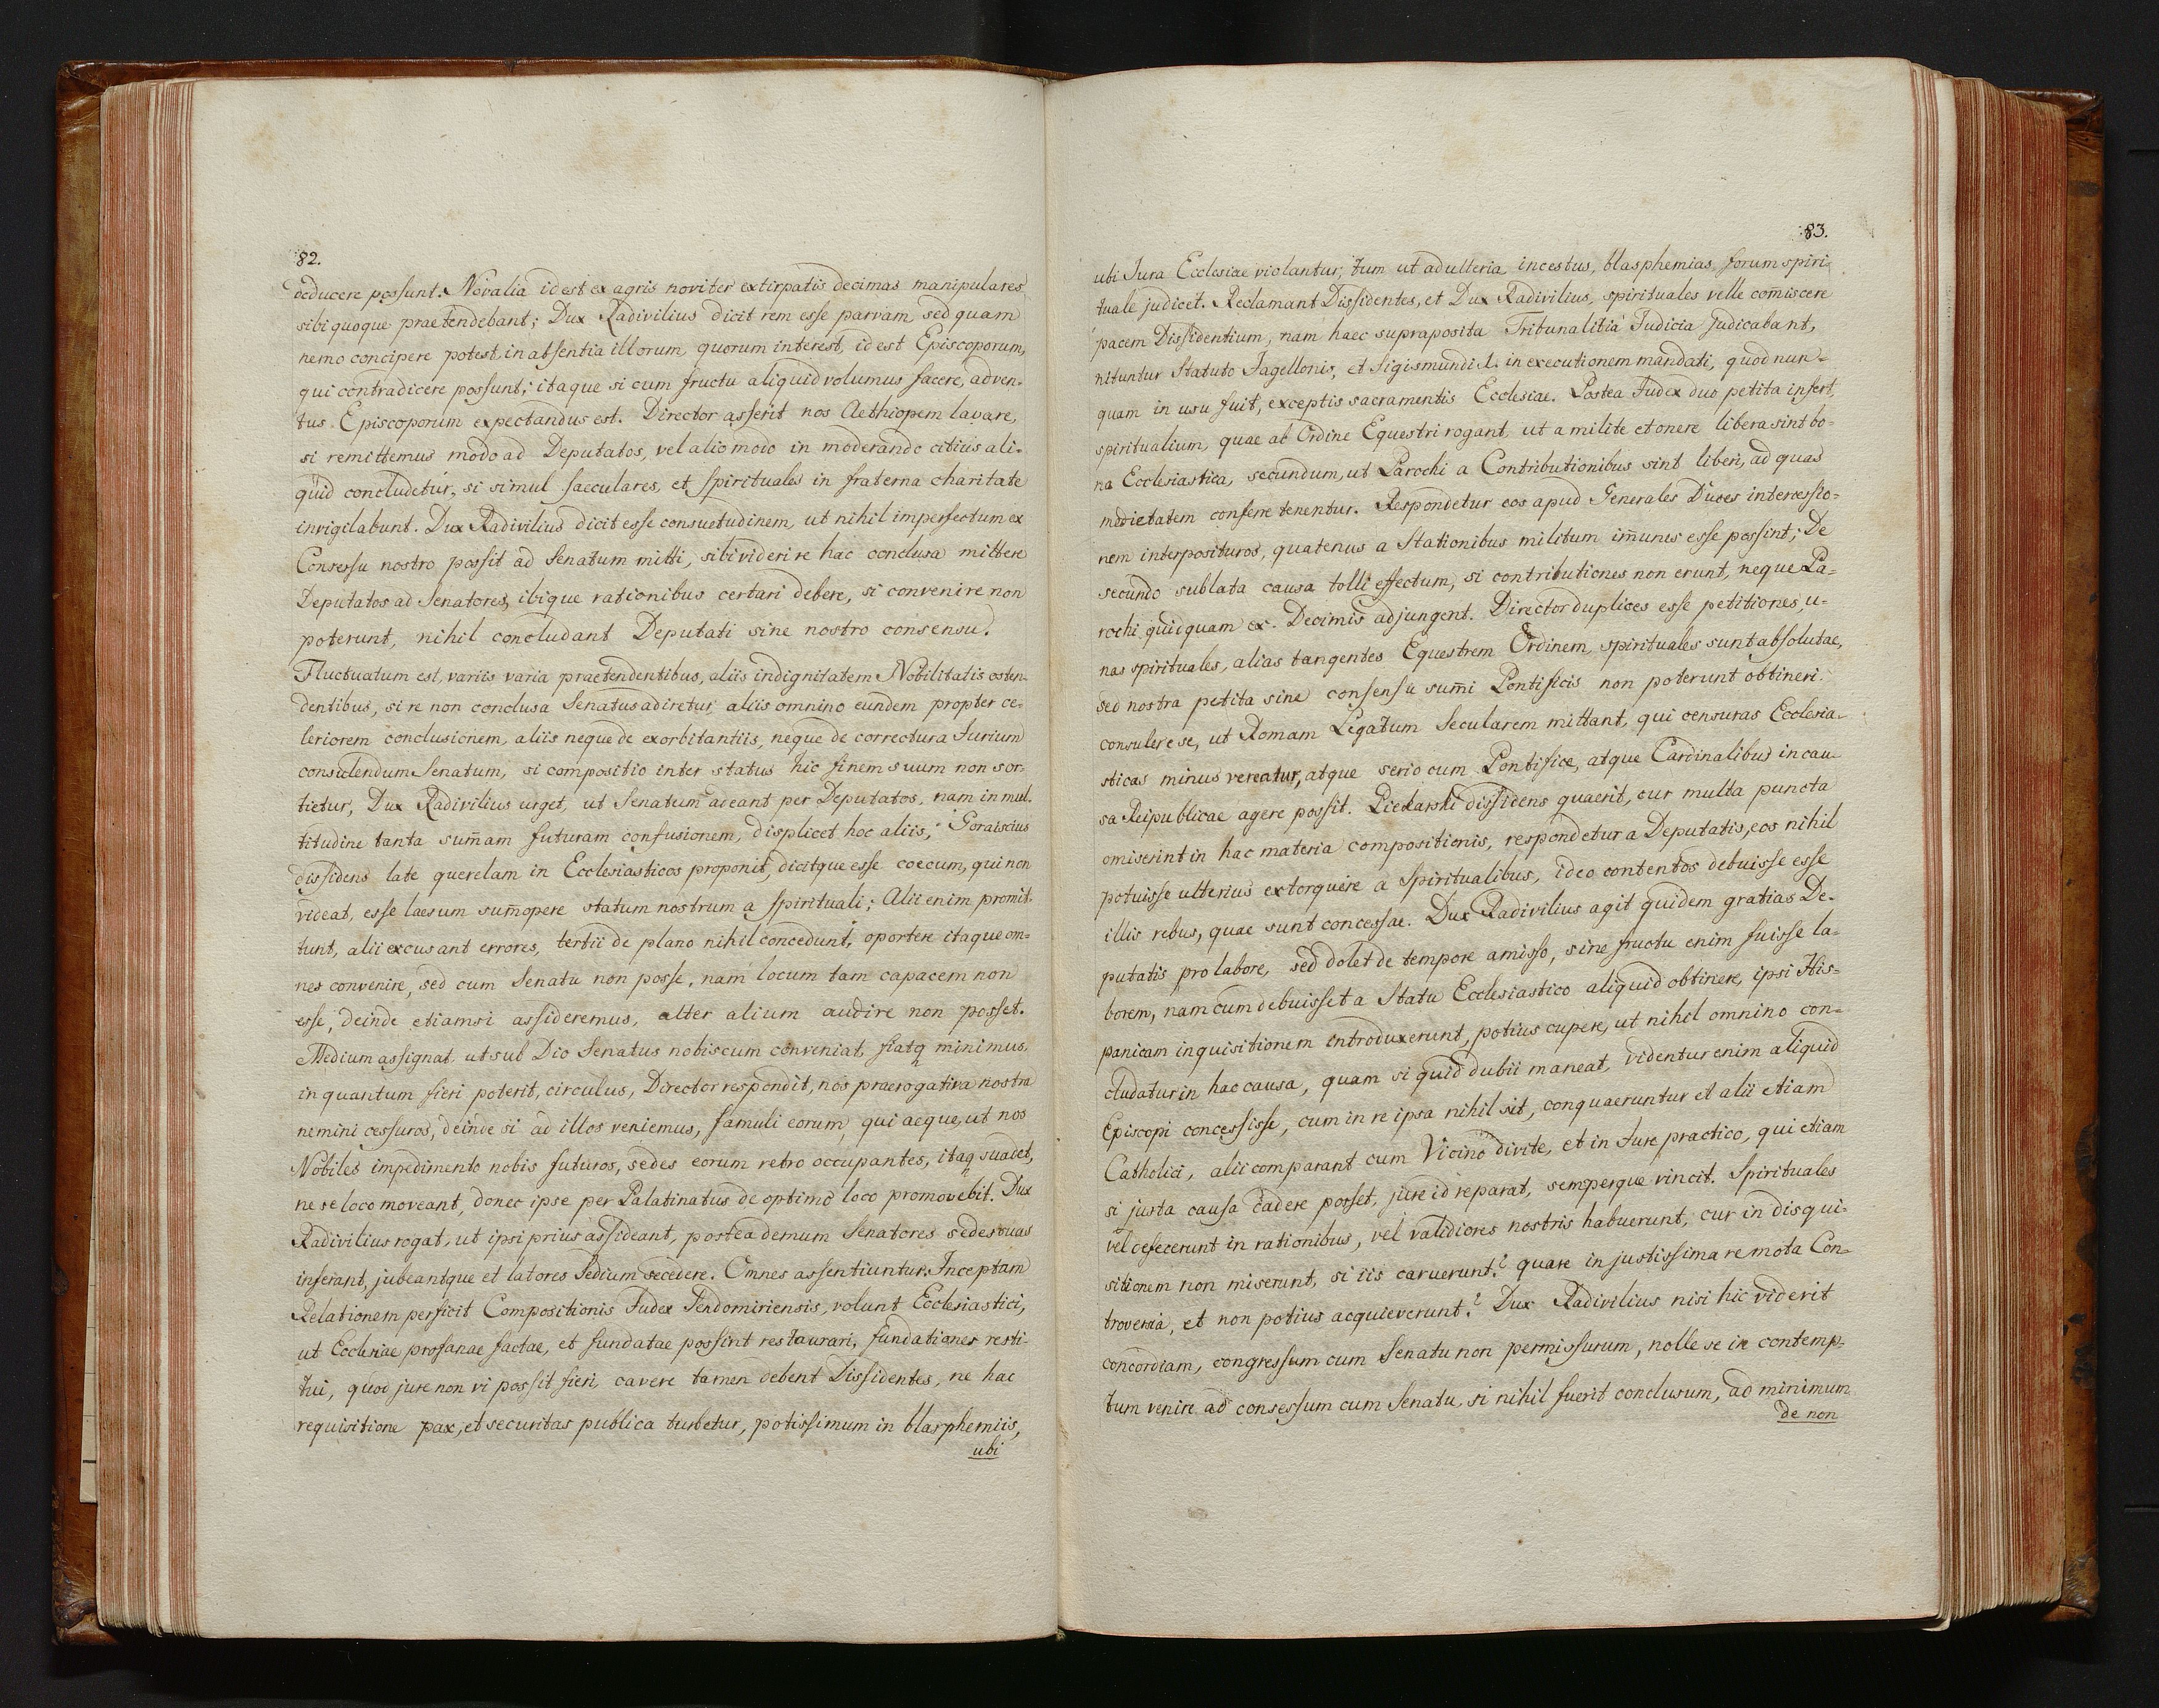 82.
deducere possunt. Novalia id est ex agris noviter extirpatis decimas manipulares
sibi quoque praetendebant; Dux Radivilius dicit rem esse parvam, sed quam
nemo concipere potest, in absentia illorum, quorum interest, id est Episcoporum,
qui contradicere possunt; itaque si cum fructu aliquid volumus facere, adven-
tus Episcoporum expectandus est. Director asserit nos Aethiopem lavare,
si remittemus modo ad Deputatos, vel alio modo in moderando citius ali-
quid concludetur, si simul saeculares, et Spirituales in fraterna charitate
invigilabunt. Dux Radivilius dicit esse consuetudinem, ut nihil imperfectum ex
Consessu nostro possit ad Senatum mitti, sibi videri re hac conclusa mittere
Deputatos ad Senatores, ibique rationibus certari debere, si convenire non
poterunt, nihil concludant Deputati sine nostro consensu.
Fluctuatum est, variis varia praetendentibus, aliis indignitatem Nobilitatis osten-
dentibus, si re non conclusa Senatus adiretur, aliis omnino eundem propter ce-
leriorem conclusionem, aliis neque de exorbitantiis, neque de correctura Jurium
consulendum Senatum, si compositio inter status hic finem suum non sor-
tietur, Dux Radivilius urget, ut Senatum adeant per Deputatos, nam in mul-
titudine tanta sum̄am futuram confusionem, displicet hoc aliis, Goraiscius
dissidens late querelam in Ecclesiasticos proponit, dicitque esse coecum, qui non
videat, esse laesum sum̄opere statum nostrum a Spirituali; Alii enim promit-
tunt, alii excusant errores, tertii de plano nihil concedunt, oportere itaque om-
nes convenire, sed cum Senatu non posse, nam locum tam capacem non
esse, deinde etiamsi assideremus, alter alium audire non posset.
Medium assignat ut sub Dio Senatus nobiscum conveniat, fiatq minimus,
in quantum fieri poterit, circulus, Director respondit, nos praerogativa nostra
nemini cessuros, deinde si ad illos veniemus, famuli eorum, qui aeque, ut nos
Nobiles impedimento nobis futuros, sedes eorum retro occupantes, itaq suadet,
ne se loco moveant, donec ipse per Palatinatus de optimo loco promovebit. Dux
Radivilius rogat, ut ipsi prius assideant, postea demum Senatores sedes suas
inferant, jubeantque et latores Sedium secedere. Omnes assentiuntur. Inceptam
Relationem perficit Compositionis Judex Sendomiriensis, volunt Ecclesiastici,
ut Ecclesiae profanae factae, et fundatae possint restaurari, fundationes resti-
tui, quod jure non vi possit fieri, cavere tamen debent Dissidentes, ne hac
requisitione pax, et securitas publica turbetur, potissimum in blasphemiis,
ubi
83.
ubi Jura Ecclesiae violantur, tum ut adulteria, incestus, blasphemias, forum spiri-
tuale judicet. Reclamant Dissidentes, et Dux Radivilius, spirituales velle com̄iscere
pacem Dissidentium, nam haec supraposita Tribunalitia Judicia judicabant,
nituntur Statuto Jagellonis, et Sigismundi I. in executionem mandati, quod nun-
quam in usu fuit, exceptis sacramentis Ecclesiae. Postea Judex duo petita infert,
spiritualium, quae ab Ordine Equestri rogant, ut a milite et onere libera sint bo-
na Ecclesiastica, secundum, ut Parochi a Contributionibus sint liberi, ad quas
medietatem conferre tenentur. Respondetur eos apud Generales Duces intercessio-
nem interposituros, quatenus a Stationibus militum im̄unes esse possint; De
secundo sublata causa tolli effectum, si contributiones non erunt, neque Pa-
rochi quidquam ex Decimis adjungent. Director duplices esse petitiones, u-
nas spirituales, alias tangentes Equestrem Ordinem, spirituales sunt absolutae,
sed nostra petita sine consensu sum̄i Pontificis non poterunt obtineri.
consulere se, ut Romam Legatum Secularem mittant, qui censuras Ecclesia-
sticas minus vereatur, atque serio cum Pontifice, atque Cardinalibus in cau-
sa Reipublicae agere possit. Piekarski dissidens quaerit, cur multa puncta
omiserint in hac materia compositionis, respondetur a Deputatis, eos nihil
potuisse ulterius extorquere a Spiritualibus, ideo contentos debuisse esse
illis rebus, quae sunt concessae. Dux Radivilius agit quidem gratias De-
putatis pro labore, sed dolet de tempore amisso, sine fructu enim fuisse la-
borem, nam cum debuisset a Statu Ecclesiastico aliquid obtinere, ipsi His-
panicam inquisitionem introduxerunt, potius cupere, ut nihil omnino con-
cludatur in hac causa, quam si quid dubii maneat, videntur enim aliquid
Episcopi concessisse, cum in re ipsa nihil sit, conquaeruntur et alii etiam
Catholici, alii comparant cum Vicino divite, et in Jure practico, qui etiam
si justa causa cadere posset, jure id reparat, semperque vincit. Spirituales
vel defecerunt in rationibus, vel validiores nostris habuerunt, cur in disqui-
sitionem non miserunt, si iis caruerunt? quare in justissima re mota Con-
troversia, et non potius acquieverunt? Dux Radivilius nisi hic viderit
concordiam, congressum cum Senatu non permissurum, nolle se in contemp-
tum venire ad consessum cum Senatu, si nihil fuerit conclusum, ad minimum
de non